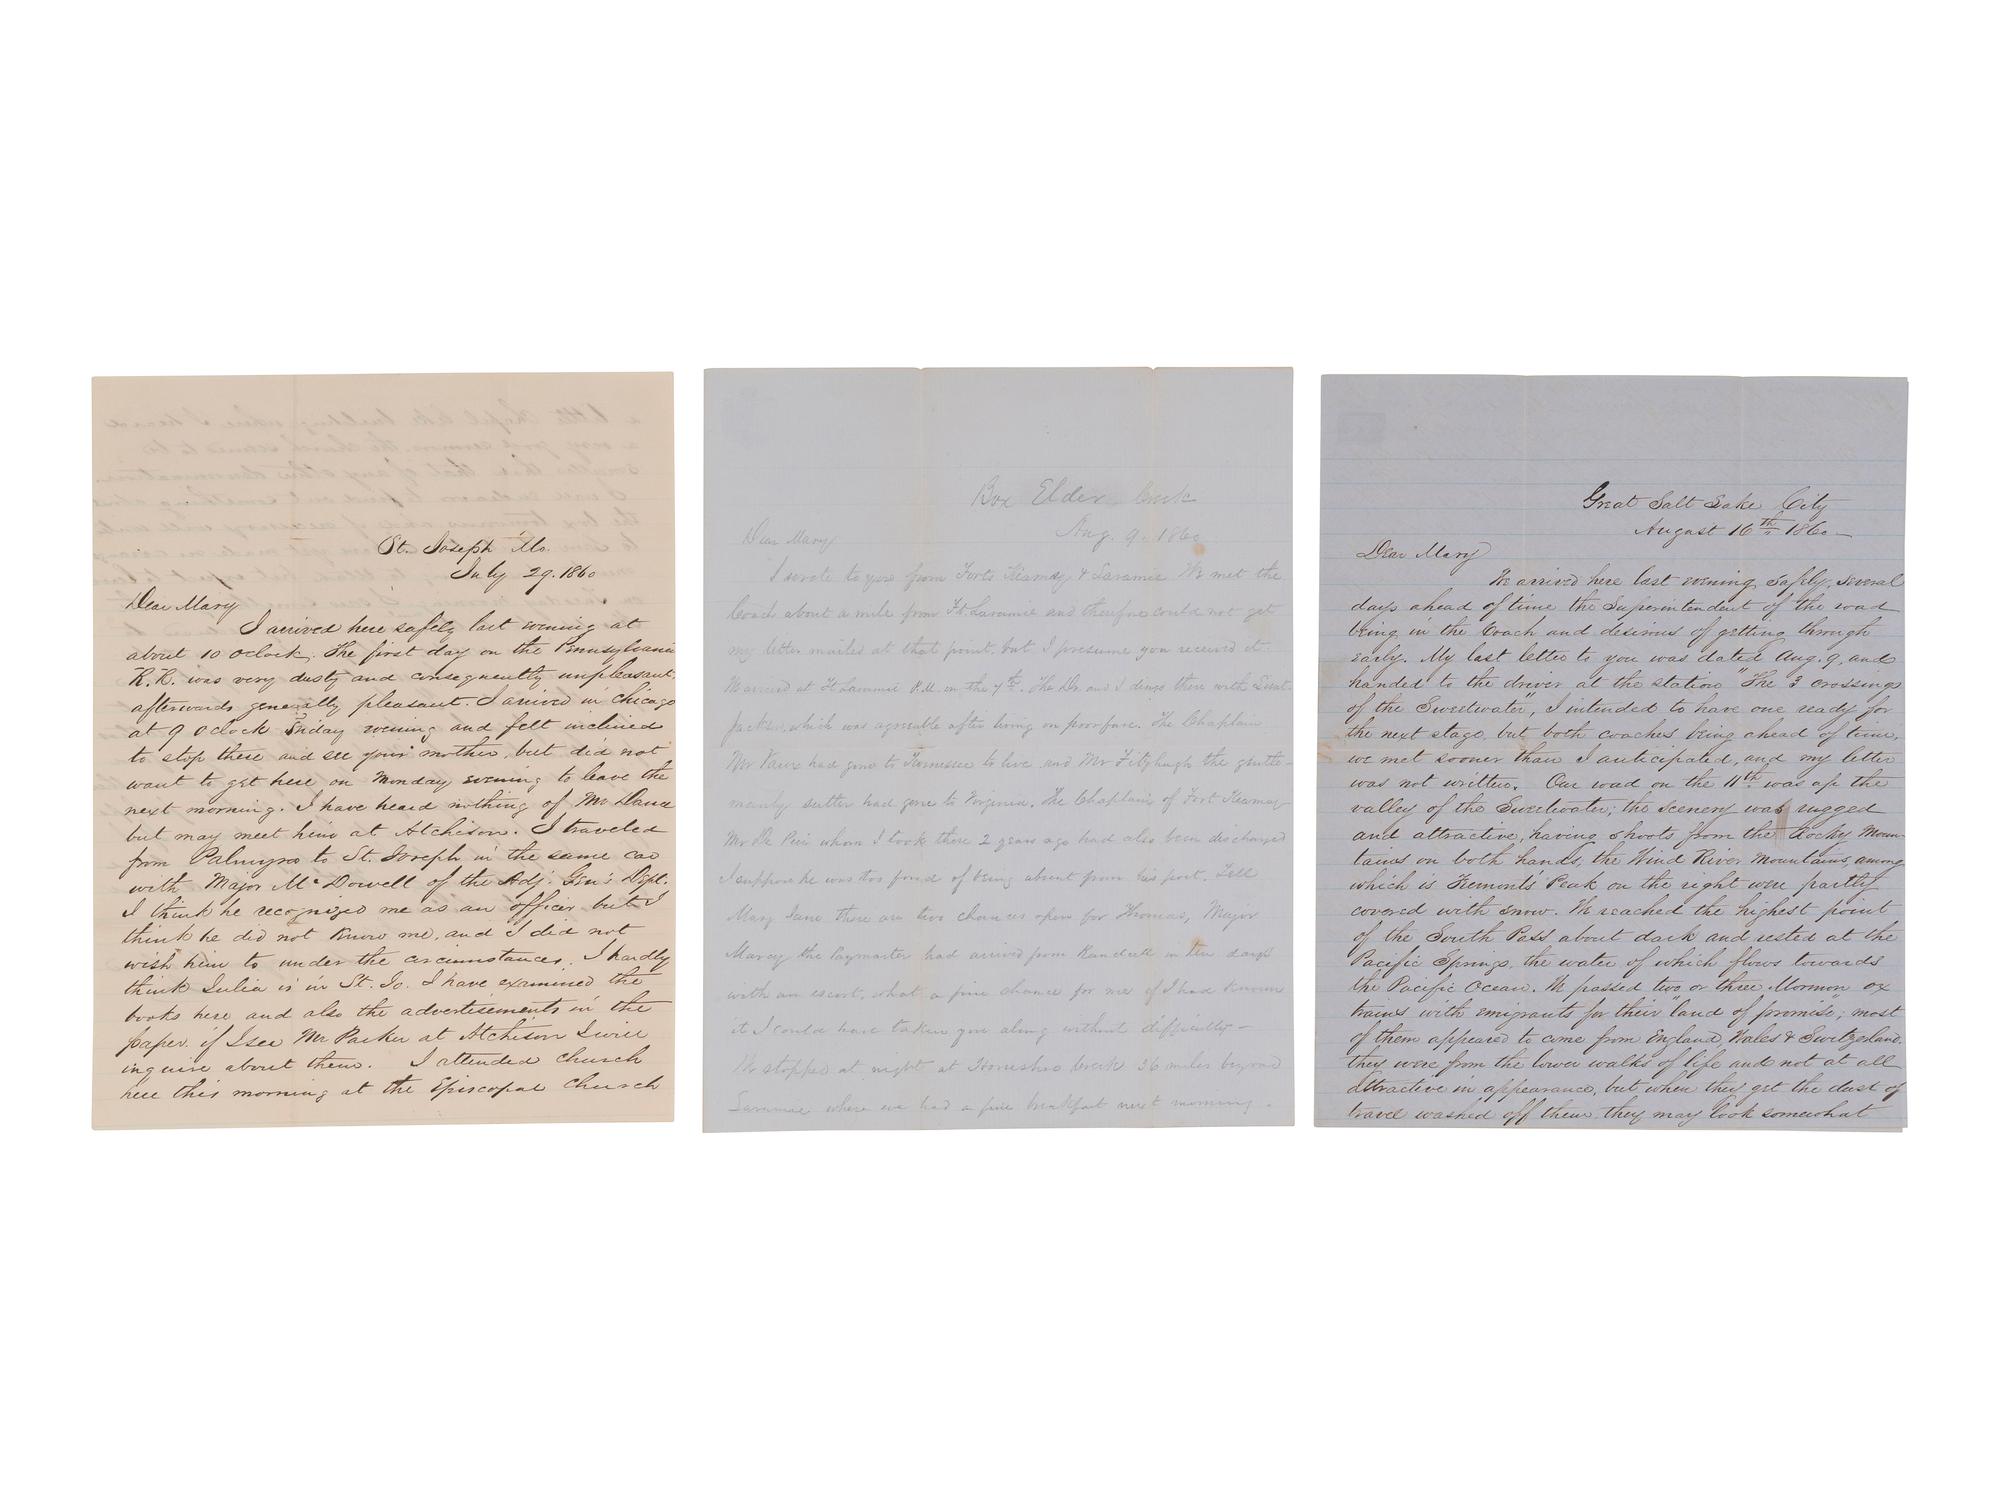 St. Joseph Mo.
July 29. 1860
Dear Mary
I arrived here safely last evening at
about 10 oclock. The first day on the Pennsylvania
R.R. was very dusty and consequently unpleasant,
afterwards generally pleasant. I arrived in Chicago
at 9 oclock Friday evening and felt inclined
to stop there and see your mother, but did not
want to get here on Monday evening to leave the
next morning. I have heard nothing of Mr Dana
but may meet him at Atchison. I traveled
from Palmyra to St. Joseph in the same car
with Major McDowell of the Adj. Gen's Dept.
I think he recognized me as an officer but I
think he did not know me, and I did not
wish him to under the circumstances. I hardly
think Julia is in St. Jo. I have examined the
books here and also the advertisements in the
paper. if I see Mr Parker at Atchison I will
inquire about them. I attended church
here this morning at the Episcopal Church
Box Elder Creek
Aug. 9. 1860
Dear Mary
I wrote to you from Forts Kearney & Laramie. We met the
Coach about a mile from Ft. Laramie and therefore could not get
my letter mailed at that point, but I presume you received it.
We arrived at Ft Laramie P.M. on the 7th. The Dr. and I dined there with Lieut.
Jackson, which was agreeable after living on poor fare. The Chaplain
Mr Vaux had gone to Tennessee to live and Mr Fitzhugh the gentle-
manly sutler had gone to Virginia. The Chaplain of Fort Kearney
Mr De whom I took there 2 years ago had also been discharged
I suppose he was too fond of being absent from his post. Tell
Mary Jane there are two chances open for Thomas, Major
Marcy the Paymaster had arrived from Randall in ten days
with an escort. what a fine chance for me if I had known
it I could have taken you along without difficulty –
We stopped at night at Horseshoe Creek 36 miles beyond
Laramie where we had a fine breakfast next morning.
Great Salt Lake City
August 16th 1860 –
Dear Mary
We arrived here last evening, safely, several
days ahead of time the Superintendent of the road
being in the Coach and desirous of getting through
early. My last letter to you was dated Aug. 9, and
handed to the driver at the station "The 3 crossings
of the Sweetwater", I intended to have one ready for
the next stage, but both coaches being ahead of time,
we met sooner than I anticipated, and my letter
was not written. Our road on the 11th was up the
valley of the Sweetwater; the scenery was rugged
and attractive, having shoots from the Rocky Moun-
tains on both hands, the Wind River Mountains, among
which is Fremont's Peak on the right were partly
covered with snow. We reached the highest point
of the South Pass about dark and rested at the
Pacific Springs, the water of which flows towards
the Pacific Ocean. We passed two or three Mormon ox
trains with emigrants for their "land of promise"; most
of them appeared to come from England, Wales & Switzerland.
they were from the lower walks of life and not at all
attractive in appearance, but when they get the dust of
travel washed off them they may look somewhat